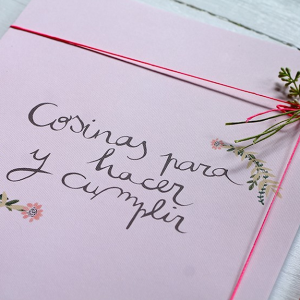 Cosinas para
y hacer
y cumplir